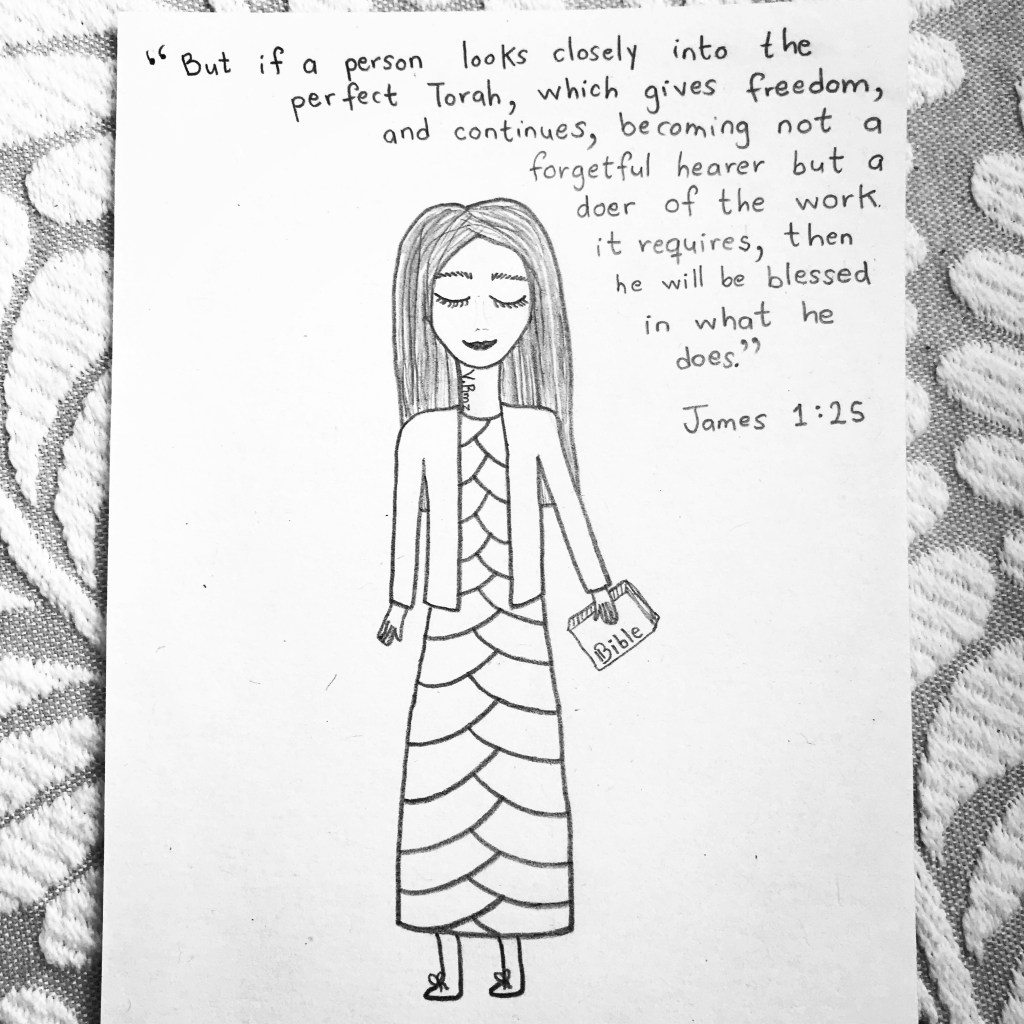 “But if a person looks closely into the
perfect Torah, which gives freedom,
and continues, becoming not a
forgetful hearer but a
doer of the work
it requires, then
he will be blessed
in what he
does.”
James 1:25
V.Rmz
Bible